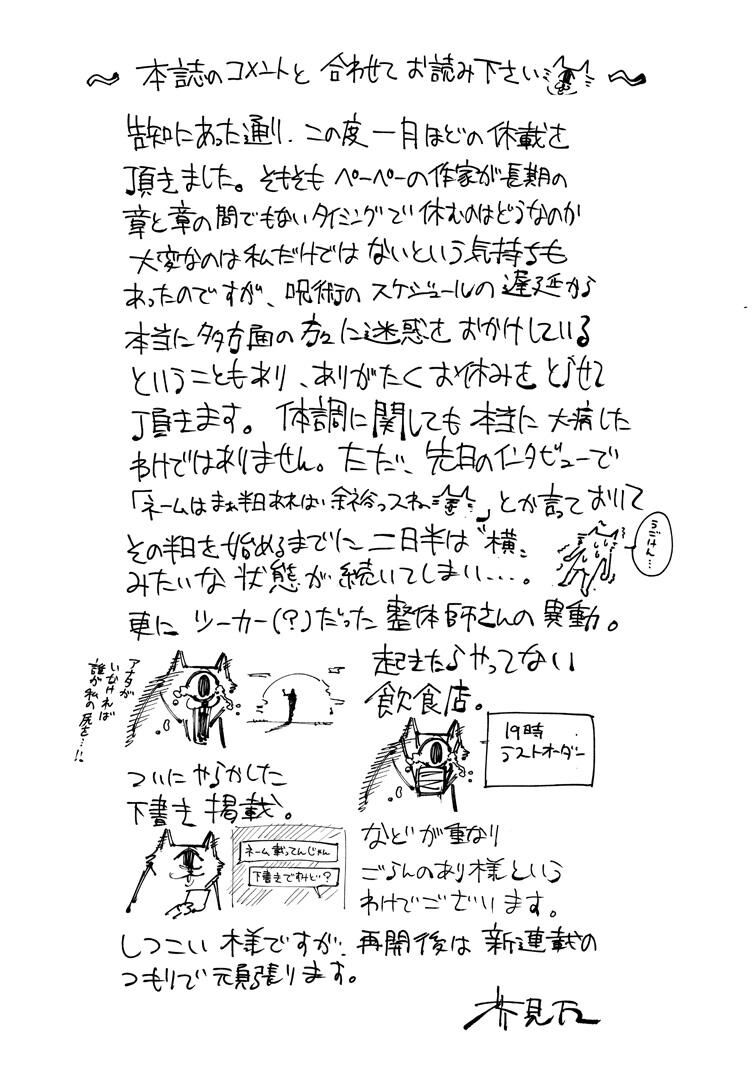 〜 本誌のコメントと 合わせて お読み下さい 〜
告知にあった通り、この度 一月ほどの休載を
頂きました。そもそも ペーペーの作家が長期の
章と章の間でもないタイミングで 休むのはどうなのか
大変なのは私だけでは ないという気持ちも
あったのですが、呪術の スケジュールの 遅延から
本当に多方面の方々に迷惑を おかけしている
ということもあり、ありがたくお休みを とらせて
頂きます。体調に関しても 本当に 大病した
わけではありません。ただ、先日のインタビューで
「ネームはまぁ半日あれば 余裕っスね 」とか言って おいて
その半日を始めるまでに 二日半は“横„
みたいな 状態が 続いてしまい…。
うごけん…
更に ツーカー(?)だった 整体師さんの 異動。
アナタが
いなければ
誰が私の尻を…!!
起きたらやってない
飲食店。
19時
ラストオーダー
ついに やらかした
下書き 掲載。
ネーム載ってんじゃん
下書きですけど?
などが 重なり
ごらんのあり様という
わけでございます。
しつこい 様ですが、再開後は 新連載の
つもりで 頑張ります。
芥見下々